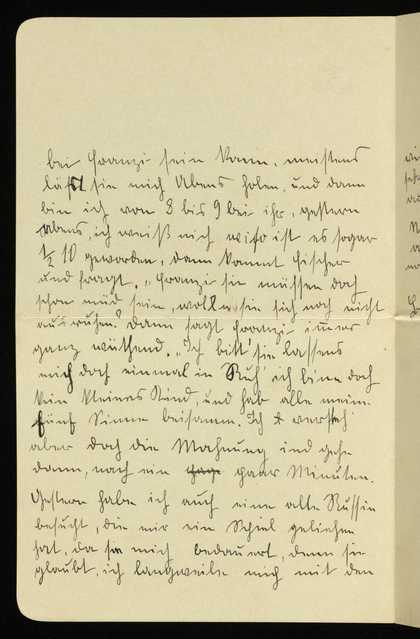 bei Franzi sein kann, meistens
läßt sie mich Abens holen, und dann
bin ich von 8 bis 9 bei ihr, gestern
Abens, ich weiß nich wiso ist es sogar
½ 10 geworden, dann kommt Fischer
und fragt, „Franzi sie müssen doch
schon müd sein, wollen sie sich noch nicht
ausruhen?" Dann sagt Franzi immer
ganz wüthend, „Ich bitt' sie lassens
mich doch einmal in Ruh' ich bin doch
kein kleines Kind, und hab alle meine
fünf Sinne beisamm. Ich versteh
aber doch die Mahnung und gehe
dann, nach ein paar Minuten.
Gestern habe ich auch eine alte Russin
besucht, die mir ein Spiel geliehen
hat, da sie mich bedauert, denn sie
glaubt, ich langweile mich mit den